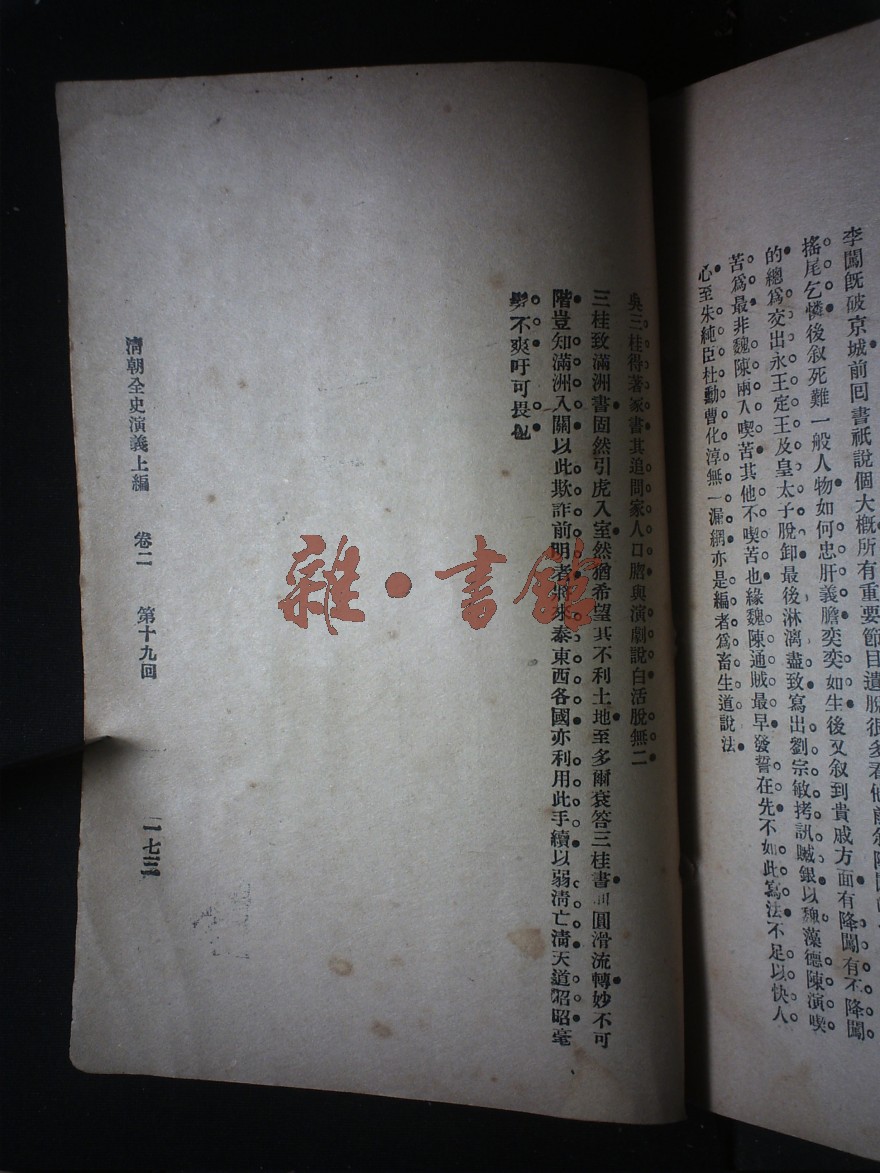 李闖旣破京城前回書祇說個大概所有重要節目遺脫很多看他前敘降闖
搖尾乞憐後叙死難一般人物如何忠肝義膽奕奕如生後又叙到貴戚方面有降闖有不降闖
的總爲交出永王定王及皇太子脫卸最後淋漓盡致寫出劉宗敏拷訊贓銀以魏藻德陳演喫
苦爲最非魏陳兩入喫苦其他不喫苦也緣魏陳通賊最早發誓在先不如此寫法不足以快人
心至朱純臣杜勳曹化淳無一漏網亦是編者爲畜生道說法
吳三桂得著家書其追問家人口脗與演劇說白活脫無二
三桂致滿洲書固然引虎入室然猶希望其不利土地至多爾袞答三桂書圓滑流轉妙不可
階豈知滿洲入關以此欺詐前明者將來泰東西各國亦利用此手續以弱淸亡淸天道昭昭毫
髮不爽吁可畏也
淸朝全史演義上編 卷二 第十九回 一七三
雜·書舘